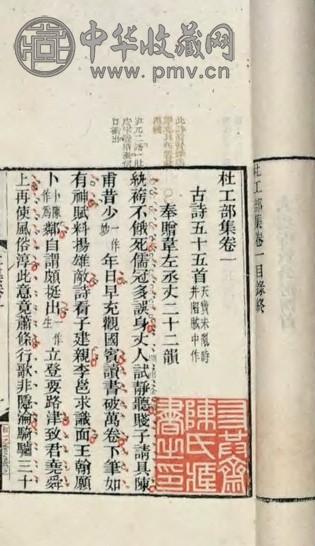 中华收藏网
www.pmv.cn
杜工部集卷一目錄終
杜工部集卷一
古詩五十五首 天寶末亂時并陷賊中作
奉贈韋左丞丈二十二韻
紈袴不餓死儒冠多誤身丈人試靜聽賤子請具陳
甫昔少一作妙年日早充觀國賓讀書破萬卷下筆如
有神賦料揚雄敵詩看子建親李邕求識面王翰願
卜陳作為鄰自謂頗挺出一作生立登要路津致君堯舜
上再使風俗淳此意竟蕭條行歌非隱淪騎驢三十